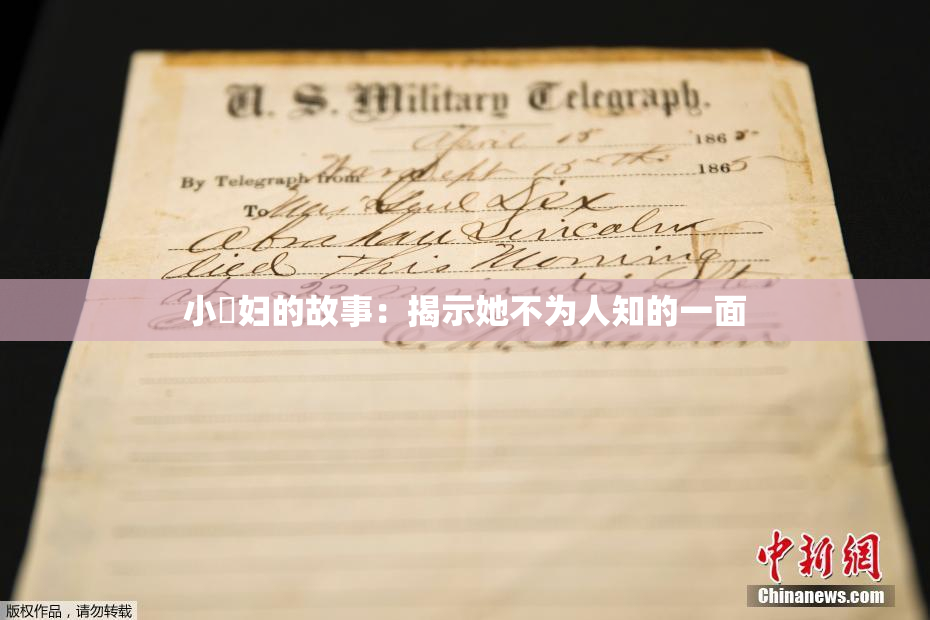 U. S. Military Telegraph.
April 15 1865
By Telegraph from War Dept 15th 1865
To Maj Genl Dix
Abraham Lincoln
died This Morning
at 22 minutes after
E. M. Stanton
小妇的故事：揭示她不为人知的一面
中新网
Chinanews.com
版权作品，请勿转载